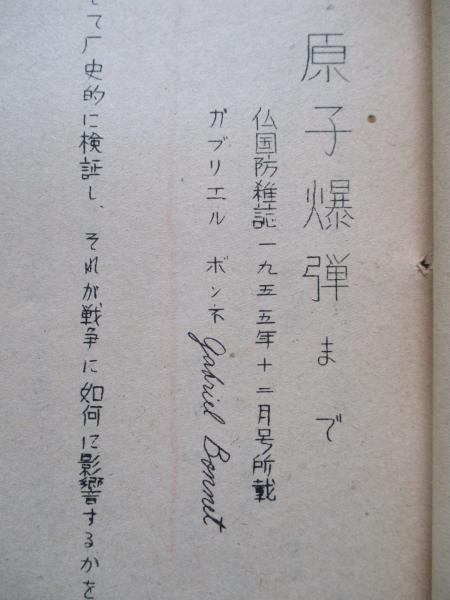 原子爆弾まで
仏国防雑誌一九五五年十二月号所載
ガブリエル ボンネ Gabriel Bonnet
して厂史的に検証し、それが戦争に如何に影響するかを